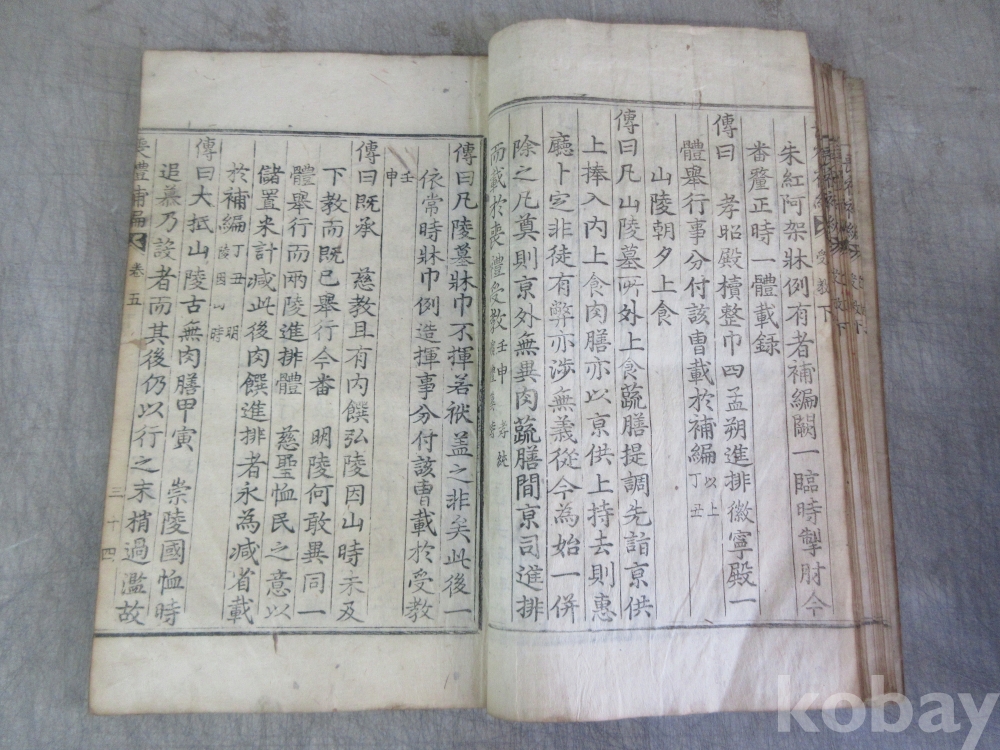 朱紅阿架牀例有者補編闕一臨時掣肘今
番釐正時一體載錄
傳曰 孝昭殿櫝整巾四孟朔進排徽寧殿一
體舉行事分付該曹載於補編以上丁丑
山陵朝夕上食
傳曰凡山陵墓所外上食蔬膳提調先詣京供
上捧入內上食肉膳亦以京供上持去則惠
廳卜定非徒有弊亦涉無義從今為始一併
除之凡奠則京外無異肉蔬膳間京司進排
而載於喪禮受教壬申孝純
傳曰凡陵墓牀巾不揮若袱盖之非矣此後一
依常時牀巾例造揮事分付該曹載於受教
壬申
傳曰既承 慈教且有內饌弘陵因山時未及
下教而既已舉行今番 明陵何敢異同一
體舉行而兩陵進排體 慈聖恤民之意以
儲置米計減此後肉饌進排者永為減省載
於補編丁丑明陵因山時
傳曰大抵山陵古無肉膳甲寅 崇陵國恤時
追義乃設者而其後仍以行之末梢過濫故
喪禮補編 卷五 三十四
受教下
kobay